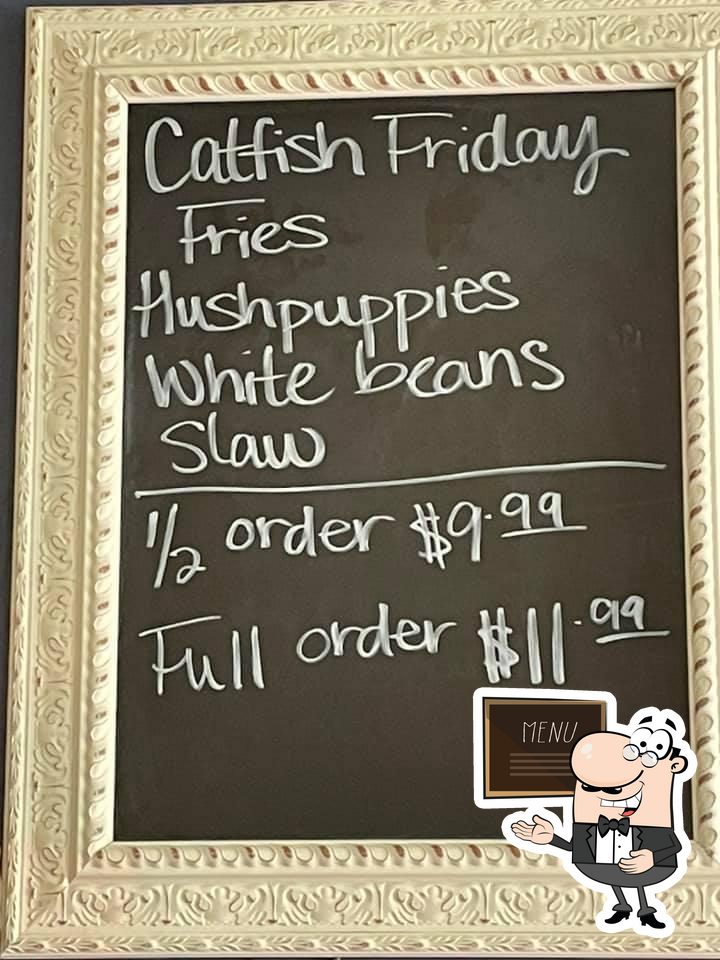 Catfish Friday
Fries
Hushpuppies
White beans
Slaw
1/2 order $9.99
Full order $11.99
MENU